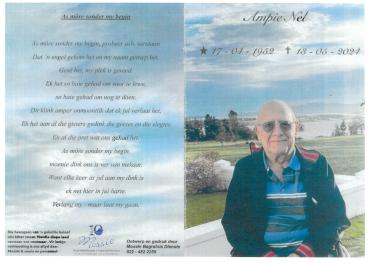 As môre sonder my begin
As môre sonder my begin, probeer asb. verstaan
Dat 'n engel gekom het en my naam geroep het.
Gesê het, my plek is gereed
Ek het so baie gehad om voor te lewe,
so baie gehad om nog te doen,
Dit klink amper onmoontlik dat ek jul verlaat het,
Ek het aan al die gisters gedink die goeies en die slegtes
En al die pret wat ons gehad het.
As môre sonder my begin,
moenie dink ons is ver van mekaar.
Want elke keer as jul aan my dink is
ek net hier in jul harte.
Verlang my - maar laat my gaan.
Mossie
Ontwerp en gedruk deur
Mossie Begrafnis Dienste
Ampie Nel
17-04-1952 † 13-05-2024